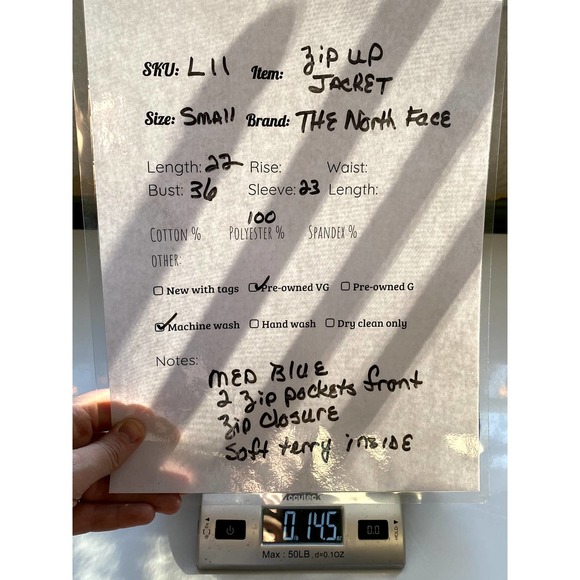 SKU: L11 Item: Zip UP
JACKET
Size: Small Brand: THE North Face
Length: 22 Rise: Waist:
Bust: 36 Sleeve: 23 Length:
100
COTTON % POLYESTER % SPANDEX %
OTHER:
New with tags Pre-owned VG Pre-owned G
Machine wash Hand wash Dry clean only
Notes:
MED BLUE
2 Zip pockets front
Zip CLOSURE
Soft terry INSIDE
Accuteck
0 14.5
0.0 HOLD
Max: 50LB d=0.1OZ